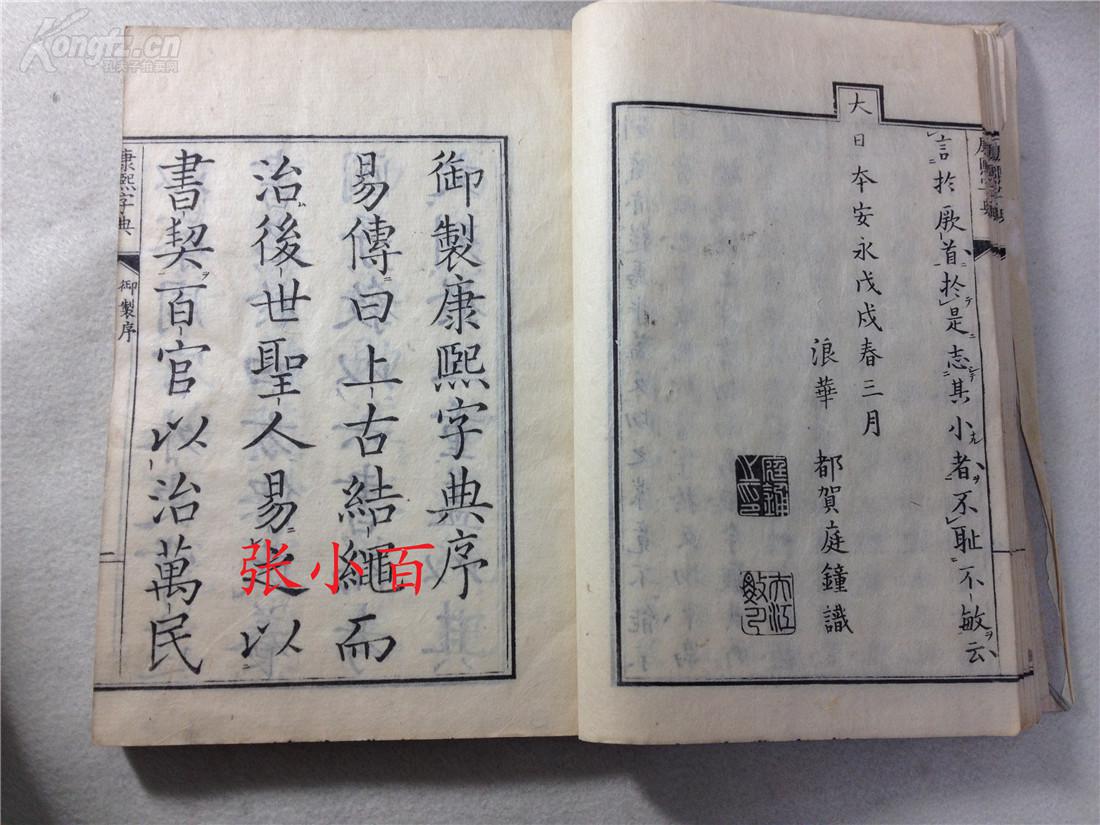 Kongfz.cn
孔夫子拍卖网
言於厥首於是志其小者不恥不敏云
大日本安永戊戌春三月
浪華 都賀庭鐘識
康熙字典
御製康熙字典序
易傳曰上古結繩而
治後世聖人易之以
書契百官以治萬民
康熙字典
御製序
一
张小百